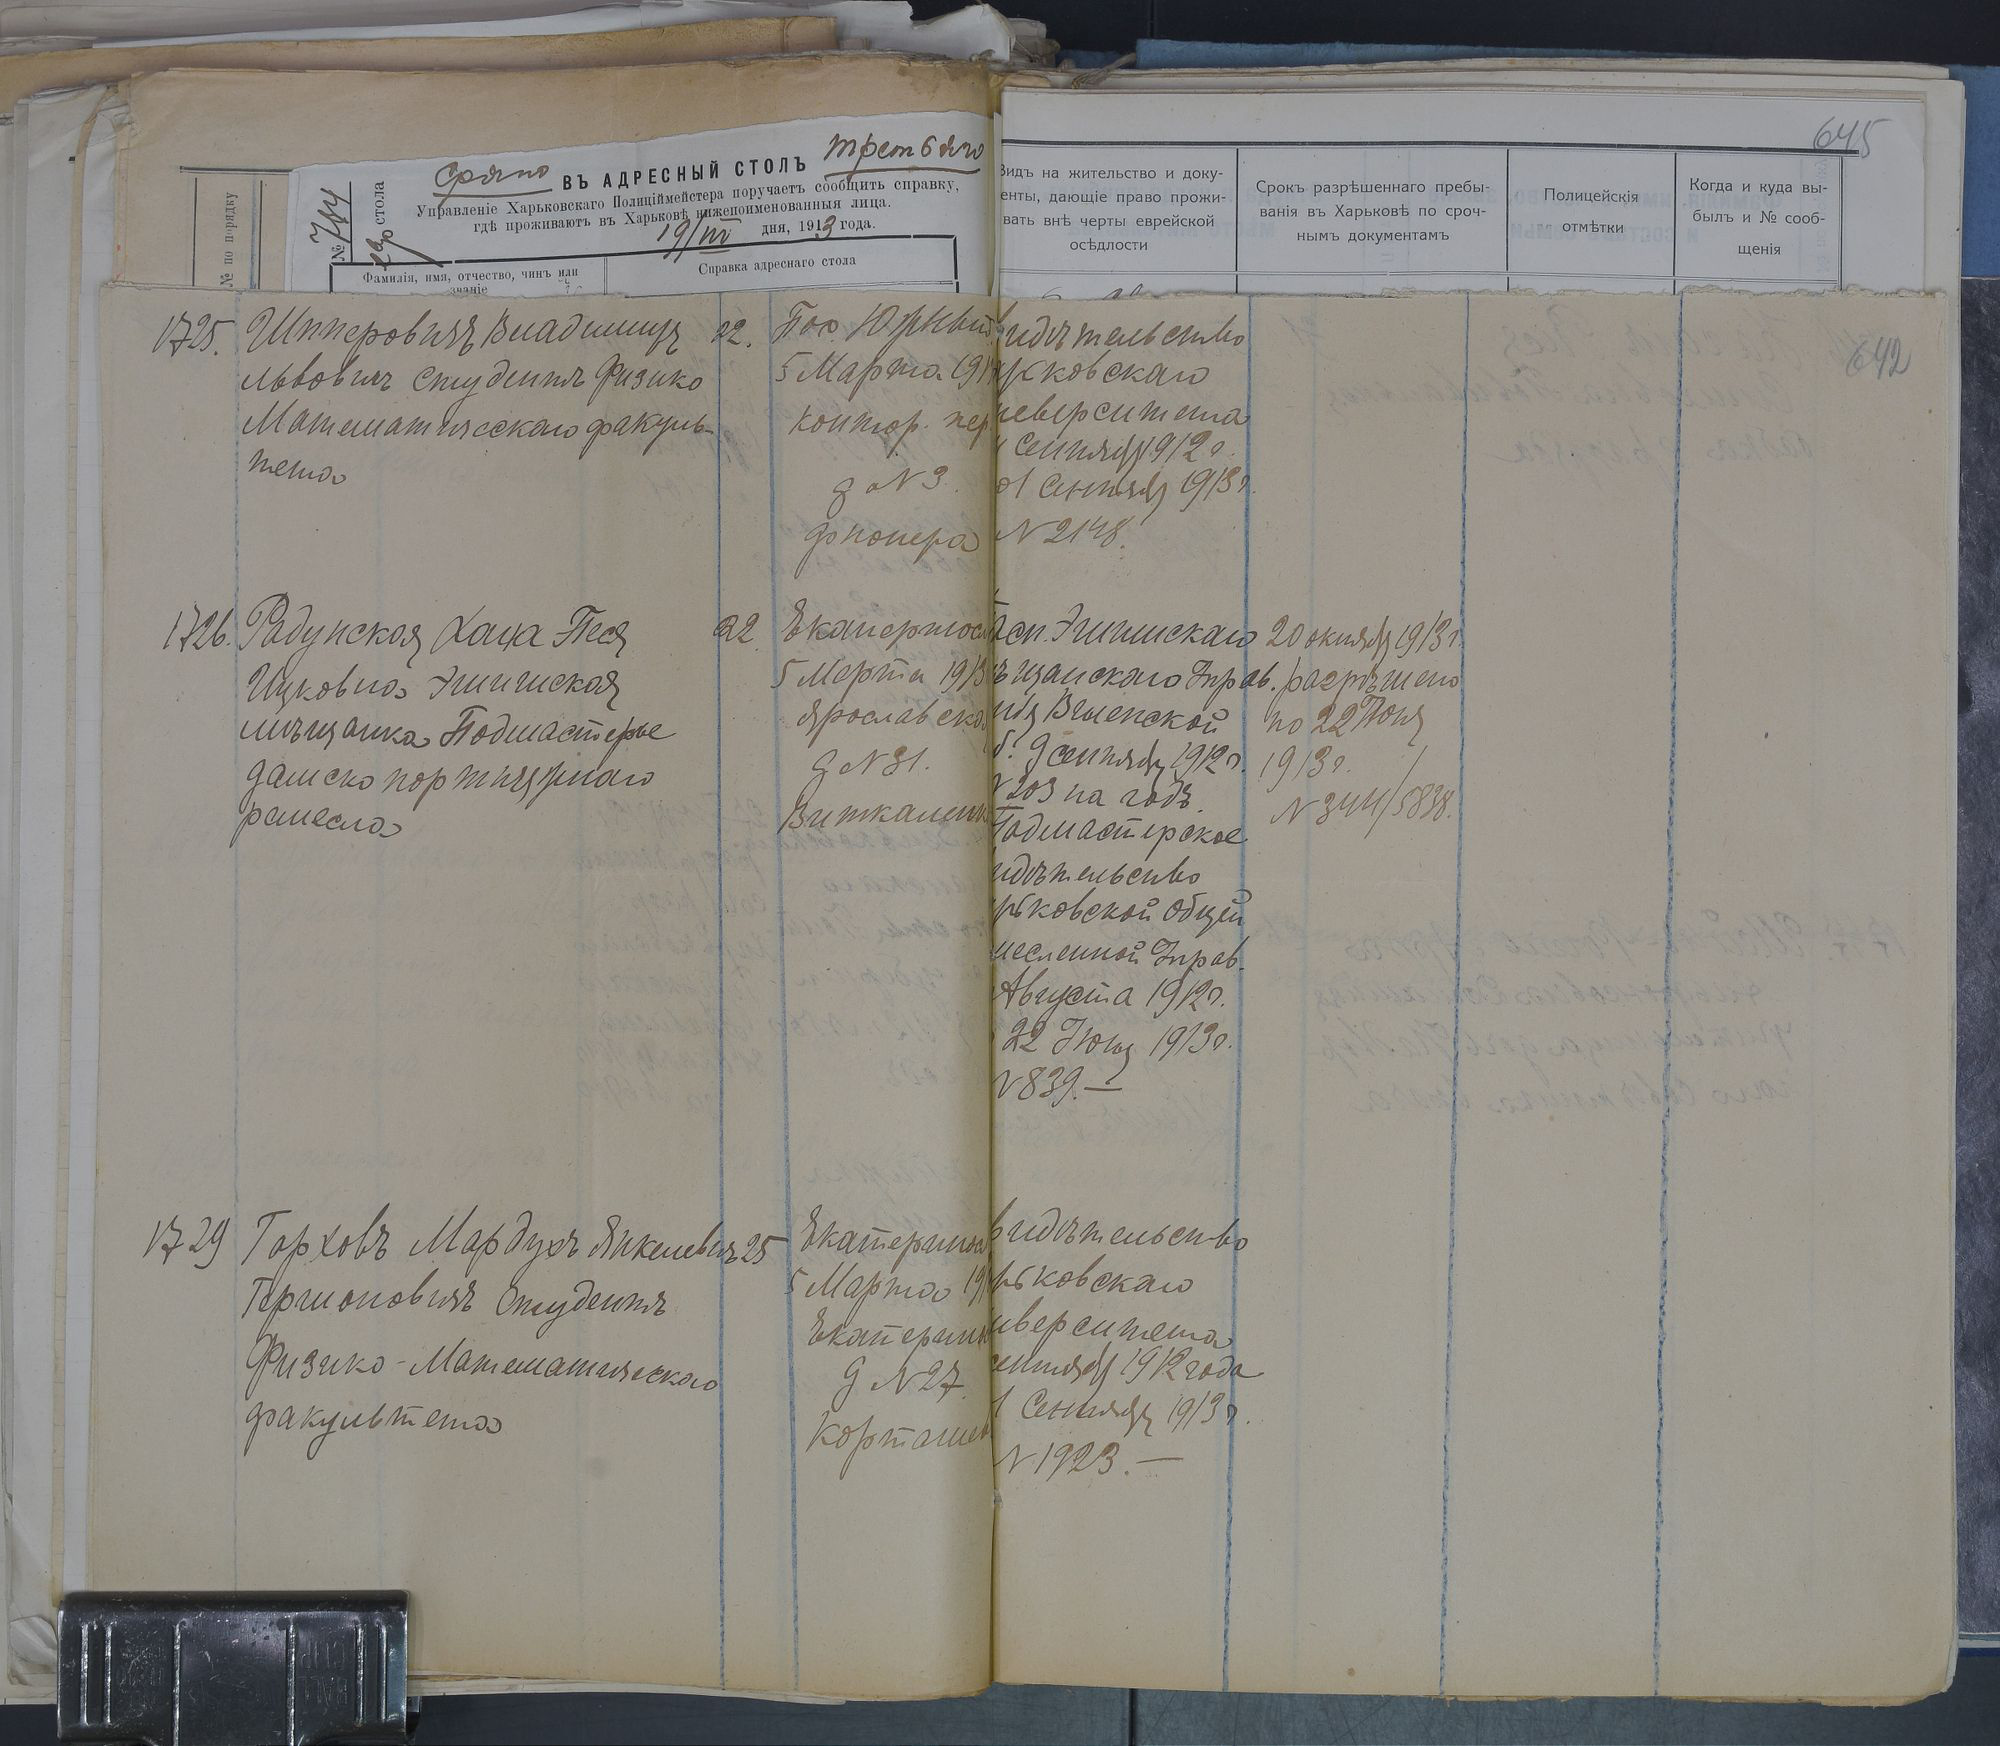 645
Срочно
третьяго
ВЪ АДРЕСНЫЙ СТОЛЪ
Управленіе Харьковскаго Полиціймейстера поручаетъ сообщить справку,
гдѣ проживаютъ въ Харьковѣ нижепоименованныя лица.
19/III дня, 1913 года.
№ 784
стола
№ по порядку
Фамилія, имя, отчество, чинъ или
званіе
Справка адреснаго стола
Видъ на жительство и доку-
енты, дающіе право прожи-
вать внѣ черты еврейской
осѣдлости
Срокъ разрѣшеннаго пребы-
ванія въ Харьковѣ по сроч-
нымъ документамъ
Полицейскія
отмѣтки
Когда и куда вы-
былъ и № сооб-
щенія
642
1725.
Владимиръ
Львовичъ Студентъ Физико
Математическаго факуль-
тета
22.
5 Марта 191
д №3.
идѣтельство
рьковскаго
иверситета
Сентября 1912 г.
о 1 Сентяб 1913 г.
№ 2148.
1726.
Радунская Хана Песя
Ицковна Эйшишская
мѣщанка Подмастерье
дамско портняжнаго
ремесла
22
5 Марта 1913
Ярославска
д №31.
асп. Эйшишскаго
ѣщанскаго Управ.
Виленской
б. 9 сентября 1912 г.
№ 203 на годъ.
Подмастерское
идѣтельство
рьковской Общей
месленной Управ.
Августа 1912 г.
22 Іюня 1913 г.
№ 839.—
20 октября 1913 г.
/разрѣшено
по 22 Іюня
1913 г./
№ 3411/5838.
1729
Горховъ Мардухъ Янкелевичъ
Студентъ
Физико-Математическаго
факультета
25
Екатеринос
5 Марта 19
Екатерин
д №27.
видѣтельство
рьковскаго
иверситета
сентября 1912 года
1 Сентября 1913 г.
№ 1923.—